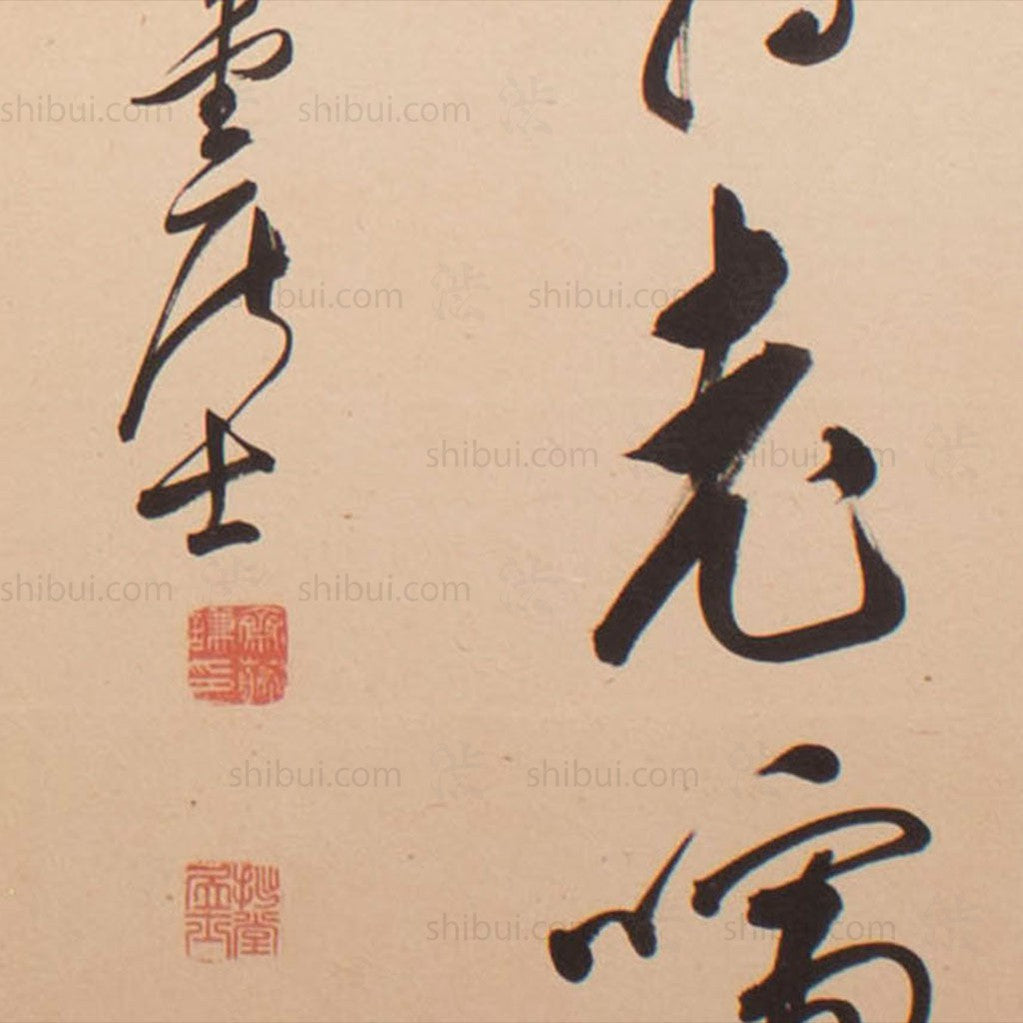 老
堂居士
齋藤謙印
拙堂
shibui.com shibui.com 渋
shibui.com 渋 shibui.com
shibui.com shibui.com 渋
shibui.com shibui.com 渋
shibui.com 渋 shibui.com
shibui.com shibui.com